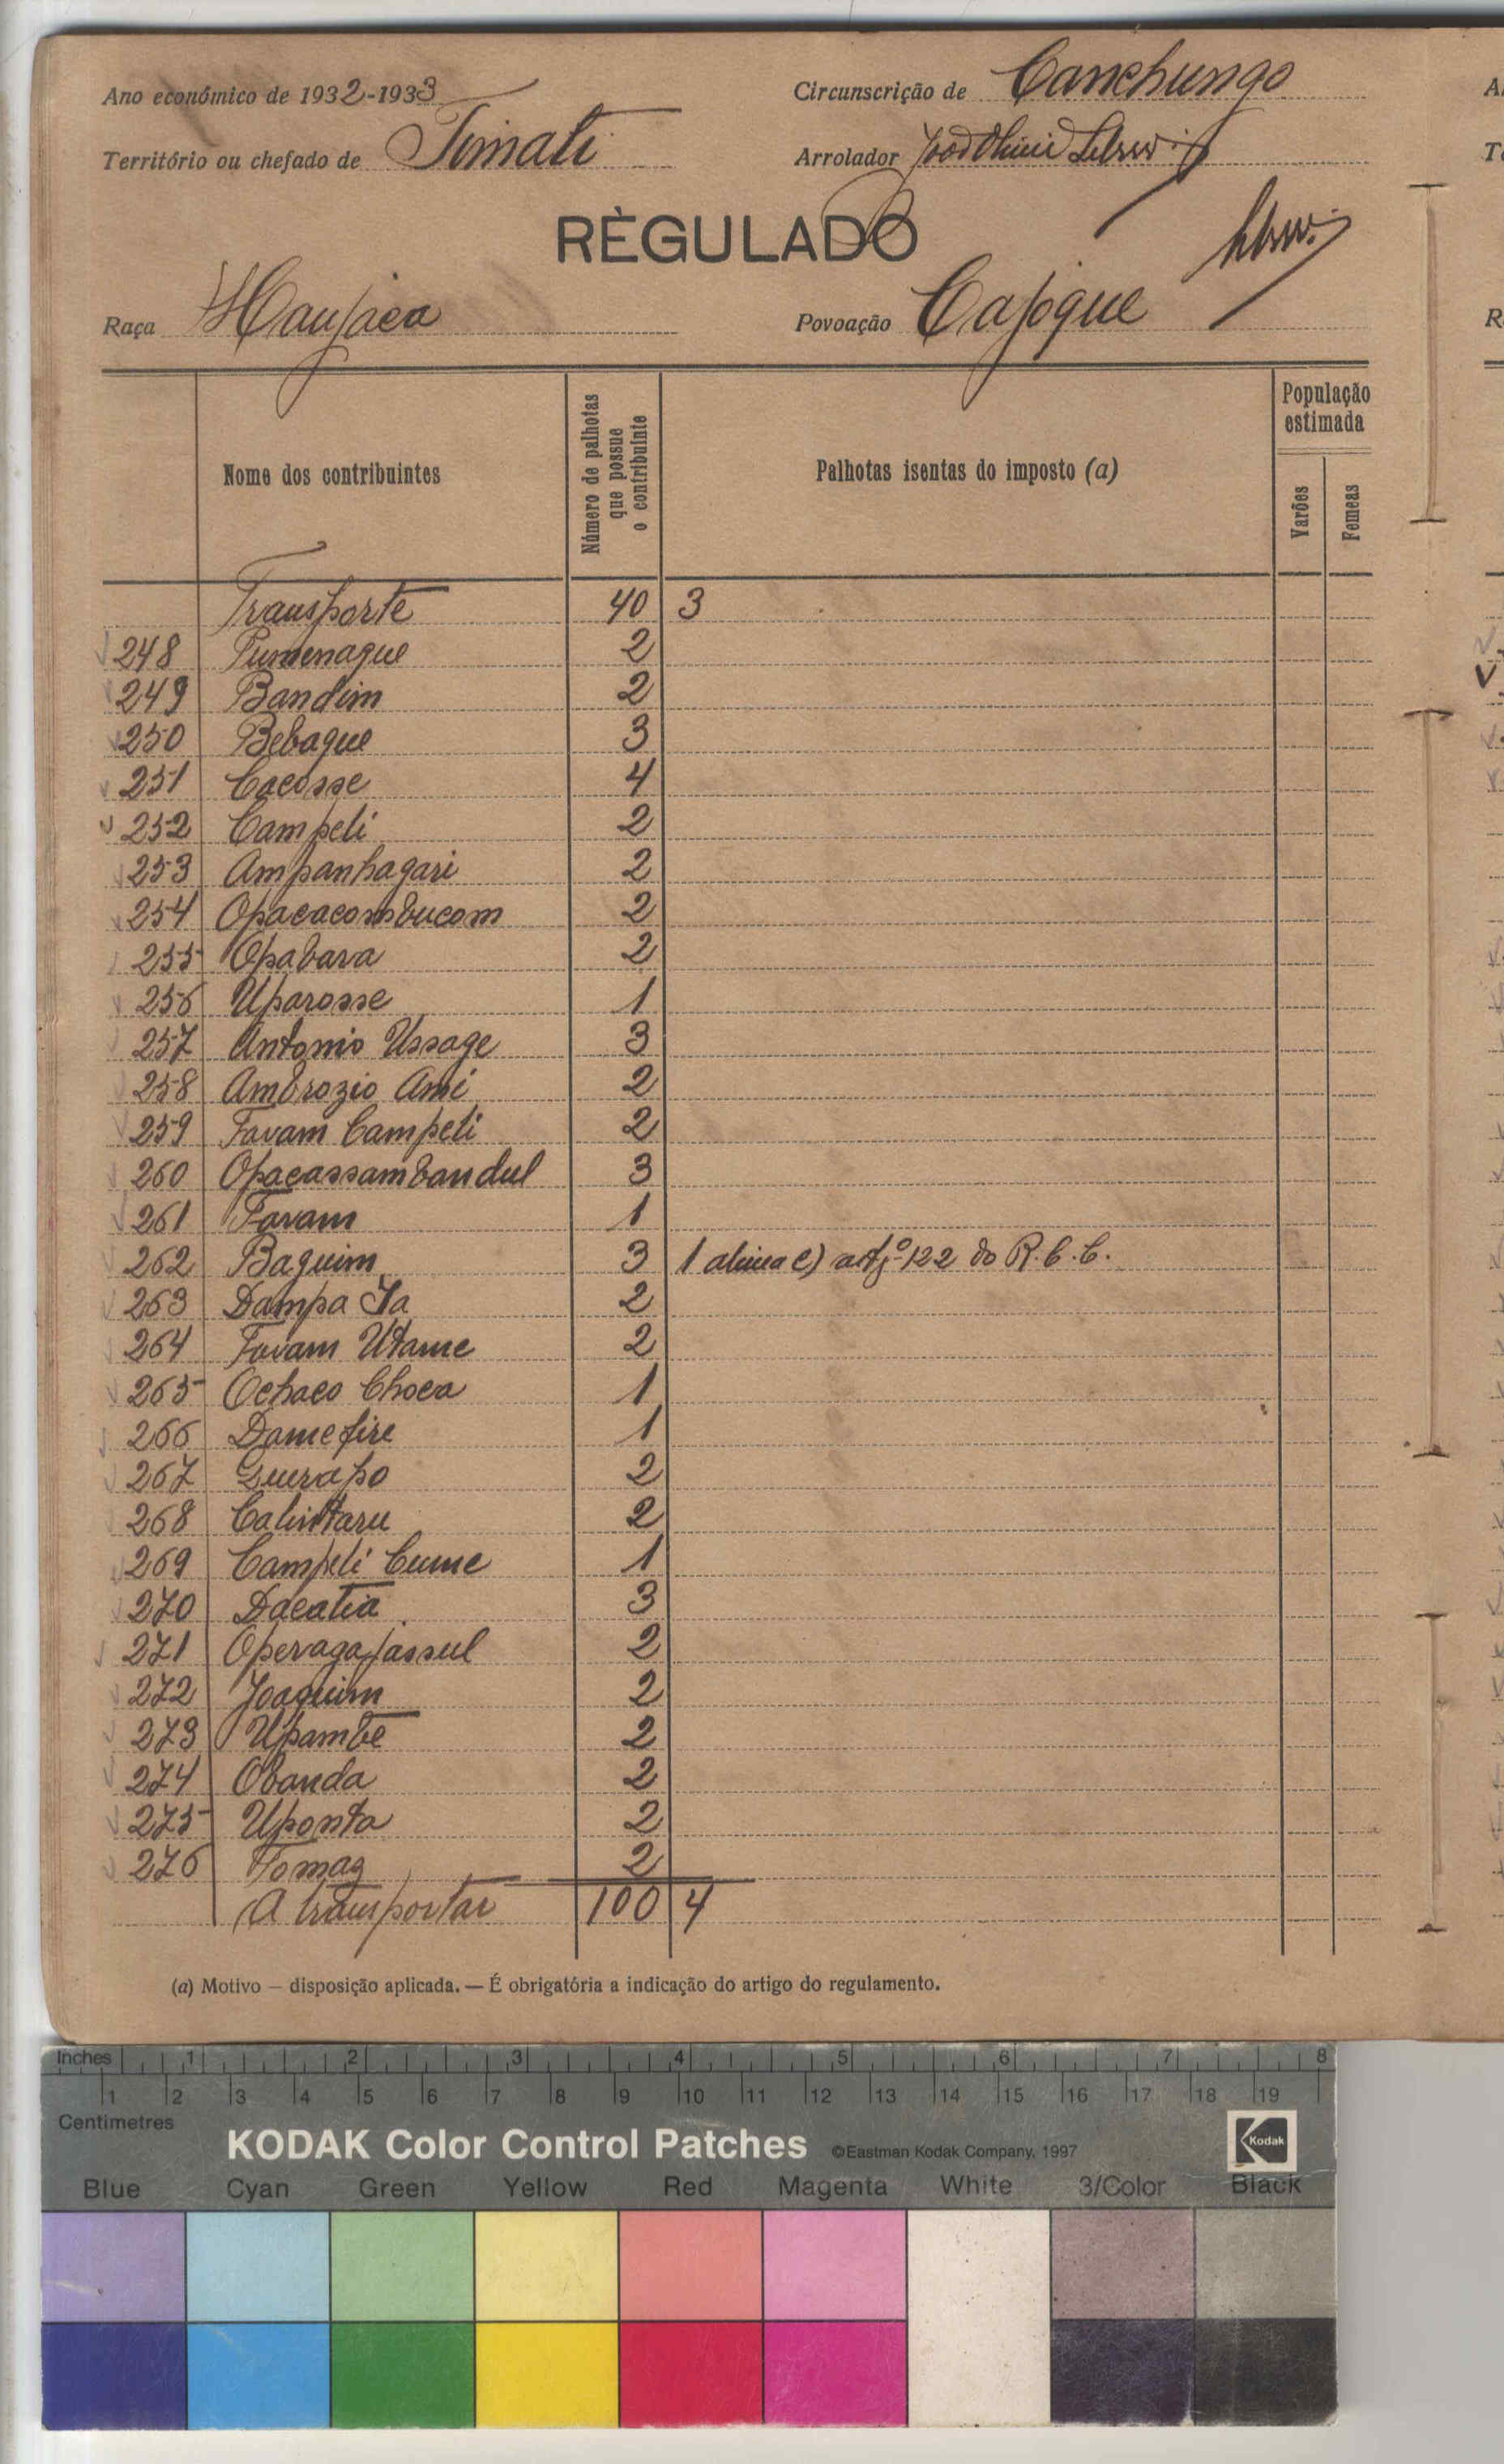 Ano económico de 1932-1933
Circunscrição de Canchungo
Território ou chefado de Timati
Arrolador
RÈGULADO
Raça Manjaca
Povoação Cajoque
Nome dos contribuintes
Número de palhotas que possue o contribuinte
Palhotas isentas do imposto (a)
População estimada
Varões
Femeas
Transporte 40 3
248 Pumenaque 2
249 Bandim 2
250 Bebaque 3
251 Cacosse 4
252 Campeli 2
253 Ampanhagari 2
254 Opacacombucom 2
255 Opabava 2
256 Uparosse 1
257 Antonio Ussage 3
258 Ambrozio Ami 2
259 Favam Campeli 2
260 Opacassambandul 3
261 Favam 1
262 Baquim 3 1 alinea e) artjº 122 do R.C.C.
263 Dampa Ja 2
264 Favam Utame 2
265 Ochaco Choca 1
266 Damefire 1
267 Gurapo 2
268 Calintaru 2
269 Campeli Cume 1
270 Dacatia 3
271 Opervagajassul 2
272 Joaquim 2
273 Upambe 2
274 Obanda 2
275 Uponta 2
276 Tomaz 2
A transportar 100 4
(a) Motivo — disposição aplicada. — É obrigatória a indicação do artigo do regulamento.
Inches 1 2 3 4 5 6 7 8
1 2 3 4 5 6 7 8 9 10 11 12 13 14 15 16 17 18 19
Centimetres
KODAK Color Control Patches ©Eastman Kodak Company, 1997 Kodak
Blue Cyan Green Yellow Red Magenta White 3/Color Black